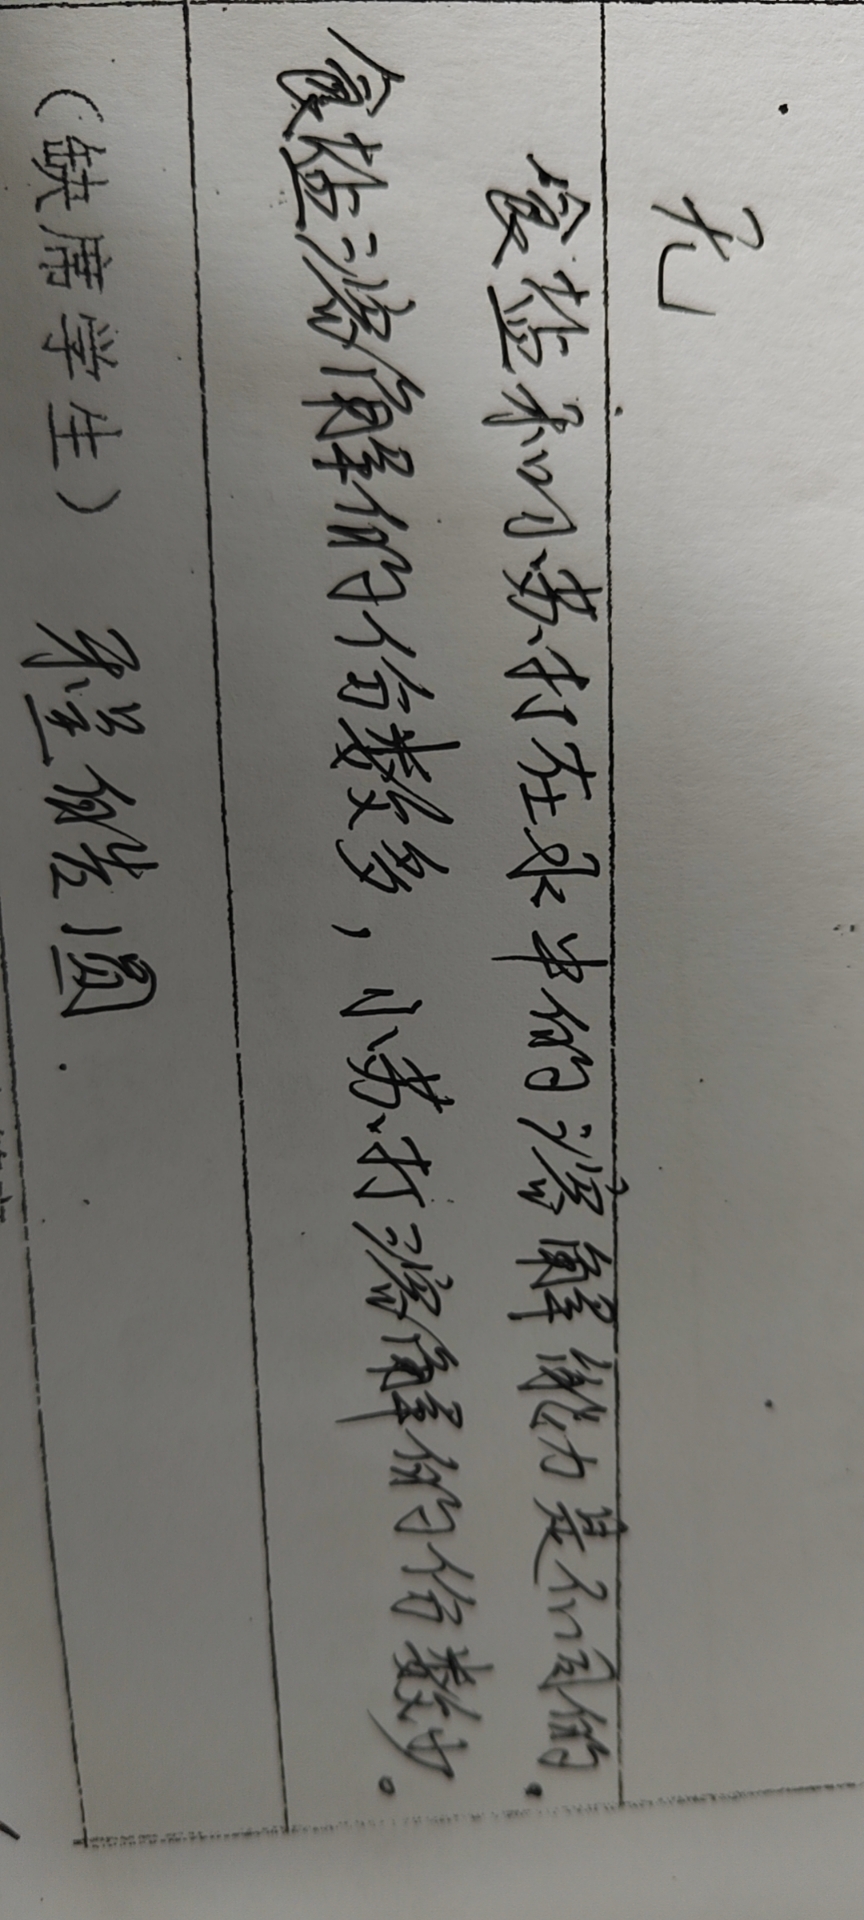 孔
食盐和小苏打在水中的溶解能力是不同的.
食盐溶解的份数多，小苏打溶解的份数少。
（缺席学生）